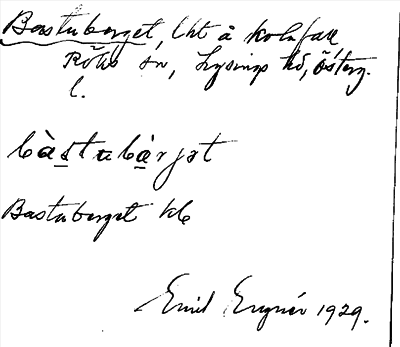 Bastuberget, lht å Kolnfall
Röks sn, Lysings hd, Österg.
l.
bàstu̱bà̱rjət
Bastuberget kle
Emil Eugnér 1929.